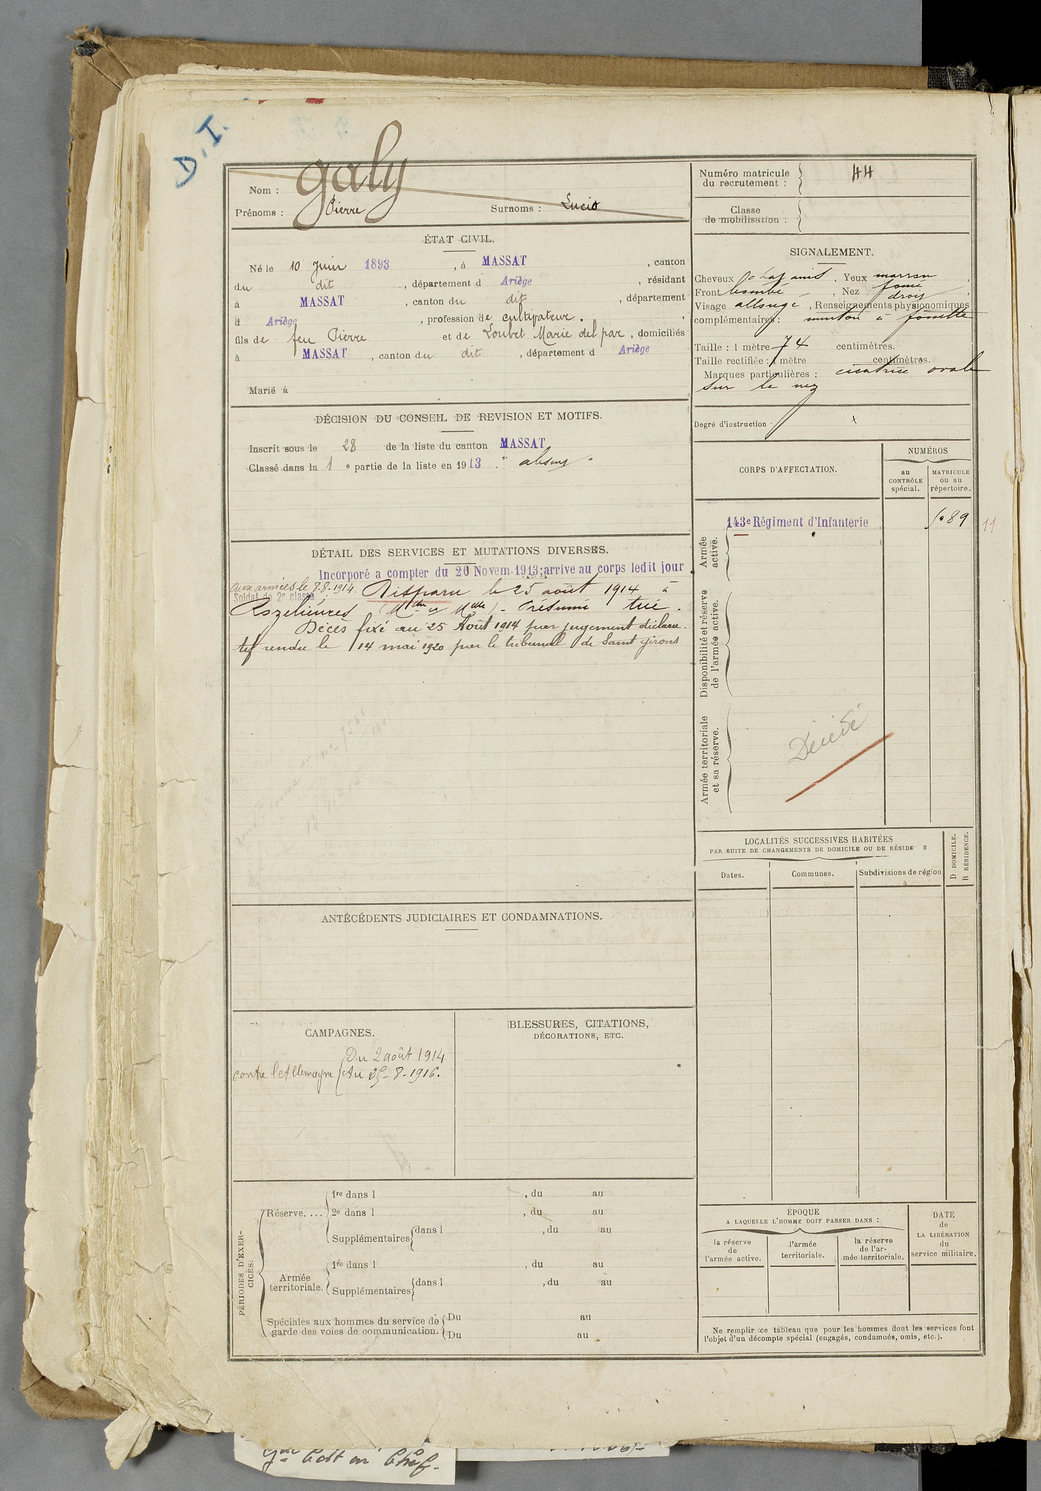 D.I.
Nom : Galy
Prénoms : Pierre Surnoms : Lucio
Numéro matricule du recrutement : 44
Classe de mobilisation :
ÉTAT CIVIL.
Né le 10 Juin 1893, à MASSAT, canton
du dit, département d Ariège, résidant
à MASSAT, canton du dit, département
d Ariège, profession de cultivateur.
fils de feu Pierre et de Loubet Marie del par, domiciliés
à MASSAT, canton du dit, département d Ariège
Marié à
SIGNALEMENT.
Cheveux Yeux marron
Front bombé, Nez
droit
Visage allongé, Renseignements physionomiques
complémentaires : menton à fossette
Taille : 1 mètre 74 centimètres.
Taille rectifiée : 1 mètre centimètres.
Marques particulières : cicatrice ovale
sur le nez
Degré d'instruction :
DÉCISION DU CONSEIL DE REVISION ET MOTIFS.
Inscrit sous le 28 de la liste du canton MASSAT
Classé dans la 1e partie de la liste en 1913. " absent "
CORPS D'AFFECTATION.
NUMÉROS
au CONTRÔLE spécial.
MATRICULE ou au répertoire.
Armée active.
143e Régiment d'Infanterie
11
Disponibilité et réserve de l'armée active.
Armée territoriale et sa réserve.
Décédé
DÉTAIL DES SERVICES ET MUTATIONS DIVERSES.
Incorporé a compter du 20 Novem. 1913; arrive au corps ledit jour
Soldat de 2e classe
Aux armées le 7.8.1914. Disparu le 25 août 1914 à
Rozelieures (Mthe et Mlle). Présumé tué.
Décès fixé au 25 Août 1914 par jugement déclara-
tif rendu le 14 mai 1920 par le tribunal de Saint Girons
LOCALITÉS SUCCESSIVES HABITÉES
PAR SUITE DE CHANGEMENTS DE DOMICILE OU DE RÉSIDE E
Dates.
Communes.
Subdivisions de région
D DOMICILE.
R RÉSIDENCE.
ANTÉCÉDENTS JUDICIAIRES ET CONDAMNATIONS.
CAMPAGNES.
contre l'Allemagne
Du 2 août 1914
Au 25-8-1916.
BLESSURES, CITATIONS,
DÉCORATIONS, ETC.
PÉRIODES D'EXERCICES.
Réserve....
1re dans l , du au
2e dans l , du au
Supplémentaires dans l , du au
Armée territoriale.
1re dans l , du au
Supplémentaires dans l , du au
Spéciales aux hommes du service de
garde des voies de communication.
Du au
Du au
ÉPOQUE
A LAQUELLE L'HOMME DOIT PASSER DANS :
la réserve de l'armée active.
l'armée territoriale.
la réserve de l'armée territoriale.
DATE de LA LIBÉRATION du service militaire.
Ne remplir ce tableau que pour les hommes dont les services font
l'objet d'un décompte spécial (engagés, condamnés, omis, etc.).